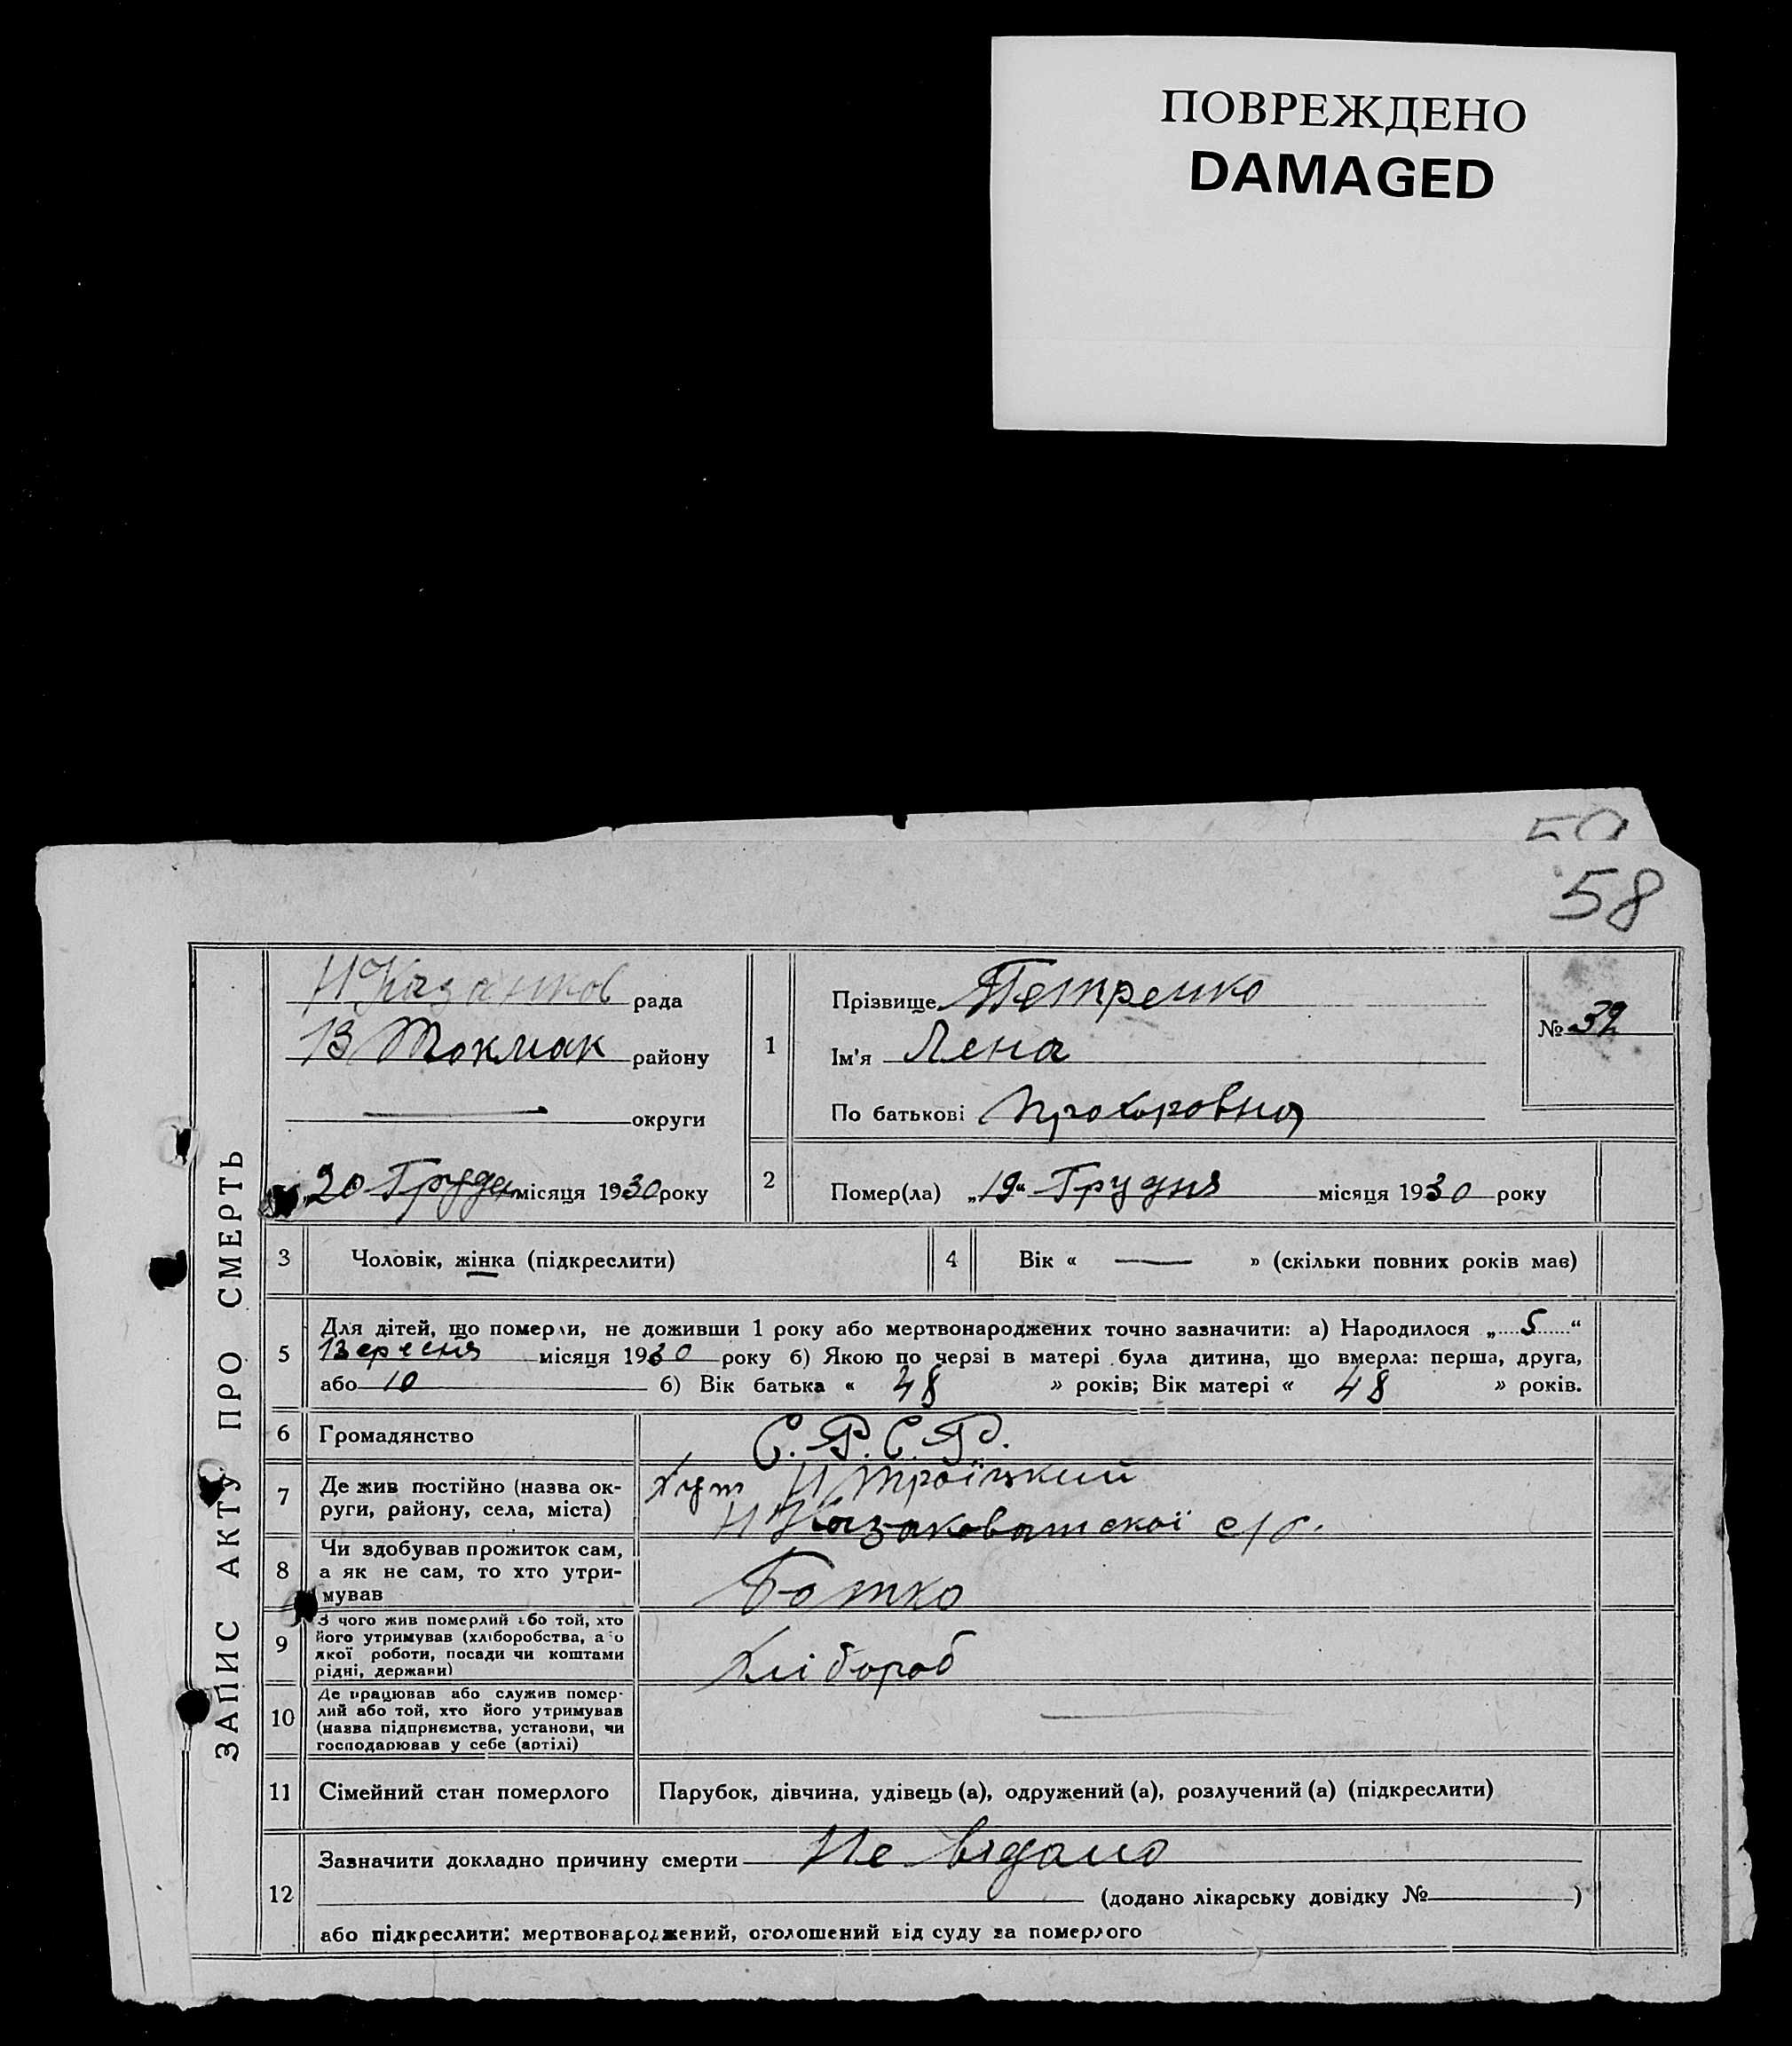 ПОВРЕЖДЕНО
DAMAGED
58
ЗАПИС АКТУ ПРО СМЕРТЬ
рада
В Токмак району
округи
„20 Грудн місяця 1930 року
1
Прізвище Петренко
Ім'я Лена
По батькові Прохоровна
№ 32
2
Помер(ла) „19“ Грудня місяця 1930 року
3 Чоловік, жінка (підкреслити)
4 Вік « — » (скільки повних років мав)
5
Для дітей, що померли, не доживши 1 року або мертвонароджених точно зазначити: а) Народилося „ 5 “
Вересня місяця 1930 року б) Якою по черзі в матері була дитина, що вмерла: перша, друга,
або 10 б) Вік батька « 48 » років; Вік матері « 48 » років.
6 Громадянство С.Р.С.Р.
7
Де жив постійно (назва ок-
руги, району, села, міста)
Хут Н Троїцький
Н с/р.
8
Чи здобував прожиток сам,
а як не сам, то хто утри-
мував
Батко
9
З чого жив померлий або той, хто
його утримував (хліборобства, або
якої роботи, посади чи коштами
рідні, держави)
Хлібороб
10
Де працював або служив помер-
лий або той, хто його утримував
(назва підприємства, установи, чи
господарював у себе (артілі)
11 Сімейний стан померлого Парубок, дівчина, удівець (а), одружений (а), розлучений (а) (підкреслити)
12
Зазначити докладно причину смерти Не відано
(додано лікарську довідку № )
або підкреслити: мертвонароджений, оголошений від суду за померлого